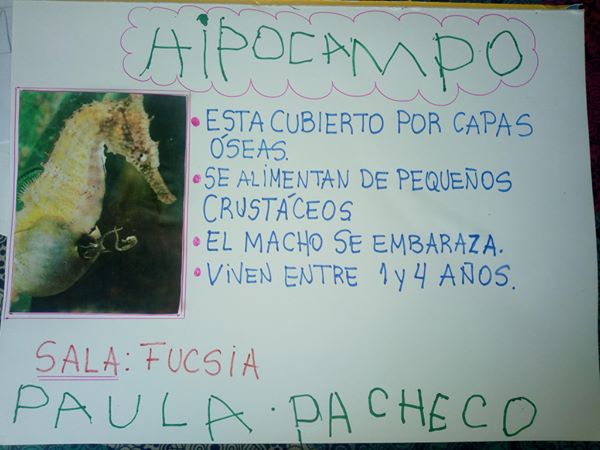 HiPOCAMPO
• ESTA CUBIERTO POR CAPAS
ÓSEAS.
• SE ALIMENTAN DE PEQUEÑOS
CRUSTÁCEOS
• EL MACHO SE EMBARAZA.
• VIVEN ENTRE 1 y 4 AÑOS.
SALA: FUCSIA
PAULA · PACHECO